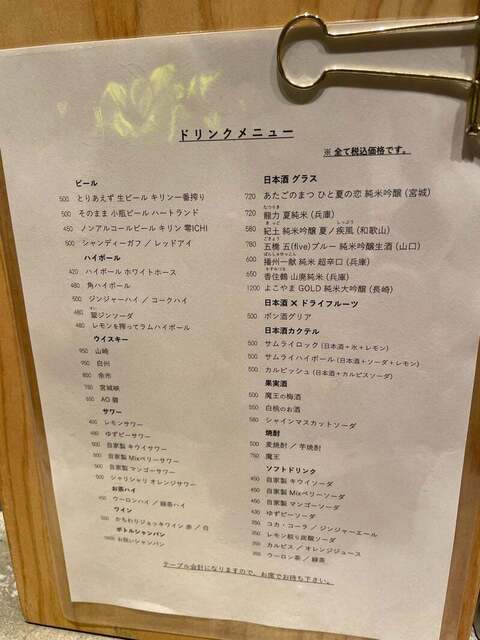 ドリンクメニュー
※ 全て税込価格です。
ビール
500 とりあえず 生ビール キリン一番搾り
500 そのまま 小瓶ビール ハートランド
450 ノンアルコールビール キリン 零ICHI
500 シャンディーガフ / レッドアイ
ハイボール
420 ハイボール ホワイトホース
480 角ハイボール
500 ジンジャーハイ / コークハイ
480 翠ジンソーダ
480 レモンを搾ってラムハイボール
ウイスキー
950 山崎
950 白州
800 余市
700 宮城峡
650 AO 碧
サワー
400 レモンサワー
480 ゆずピーサワー
500 自家製 キウイサワー
500 自家製 Mixベリーサワー
500 自家製 マンゴーサワー
500 シャリシャリ オレンジサワー
お茶ハイ
450 ウーロンハイ / 緑茶ハイ
ワイン
500 かちわりジョッキワイン 赤 / 白
ボトルシャンパン
お祝いシャンパン
日本酒 グラス
720 あたごのまつ ひと夏の恋 純米吟醸 (宮城)
たつりき
720 龍力 夏純米 (兵庫)
きっど しっぷう
580 紀土 純米吟醸 夏ノ疾風 (和歌山)
ごきょう
780 五橋 五(five)ブルー 純米吟醸生酒 (山口)
ばんしゅういっこん
600 播州一献 純米 超辛口 (兵庫)
かすみづる
650 香住鶴 山廃純米 (兵庫)
1200 よこやま GOLD 純米大吟醸 (長崎)
日本酒 × ドライフルーツ
500 ポン酒グリア
日本酒カクテル
500 サムライロック (日本酒+氷+レモン)
500 サムライハイボール (日本酒+ソーダ+レモン)
500 カルピッシュ (日本酒+カルピスソーダ)
果実酒
500 魔王の梅酒
500 白桃のお酒
580 シャインマスカットソーダ
焼酎
500 麦焼酎 / 芋焼酎
750 魔王
ソフトドリンク
450 自家製 キウイソーダ
450 自家製 Mixベリーソーダ
450 自家製 マンゴーソーダ
430 ゆずピーソーダ
350 コカ・コーラ / ジンジャーエール
350 レモン絞り炭酸ソーダ
350 カルピス / オレンジジュース
350 ウーロン茶 / 緑茶
テーブル会計になりますので、お席でお待ち下さい。